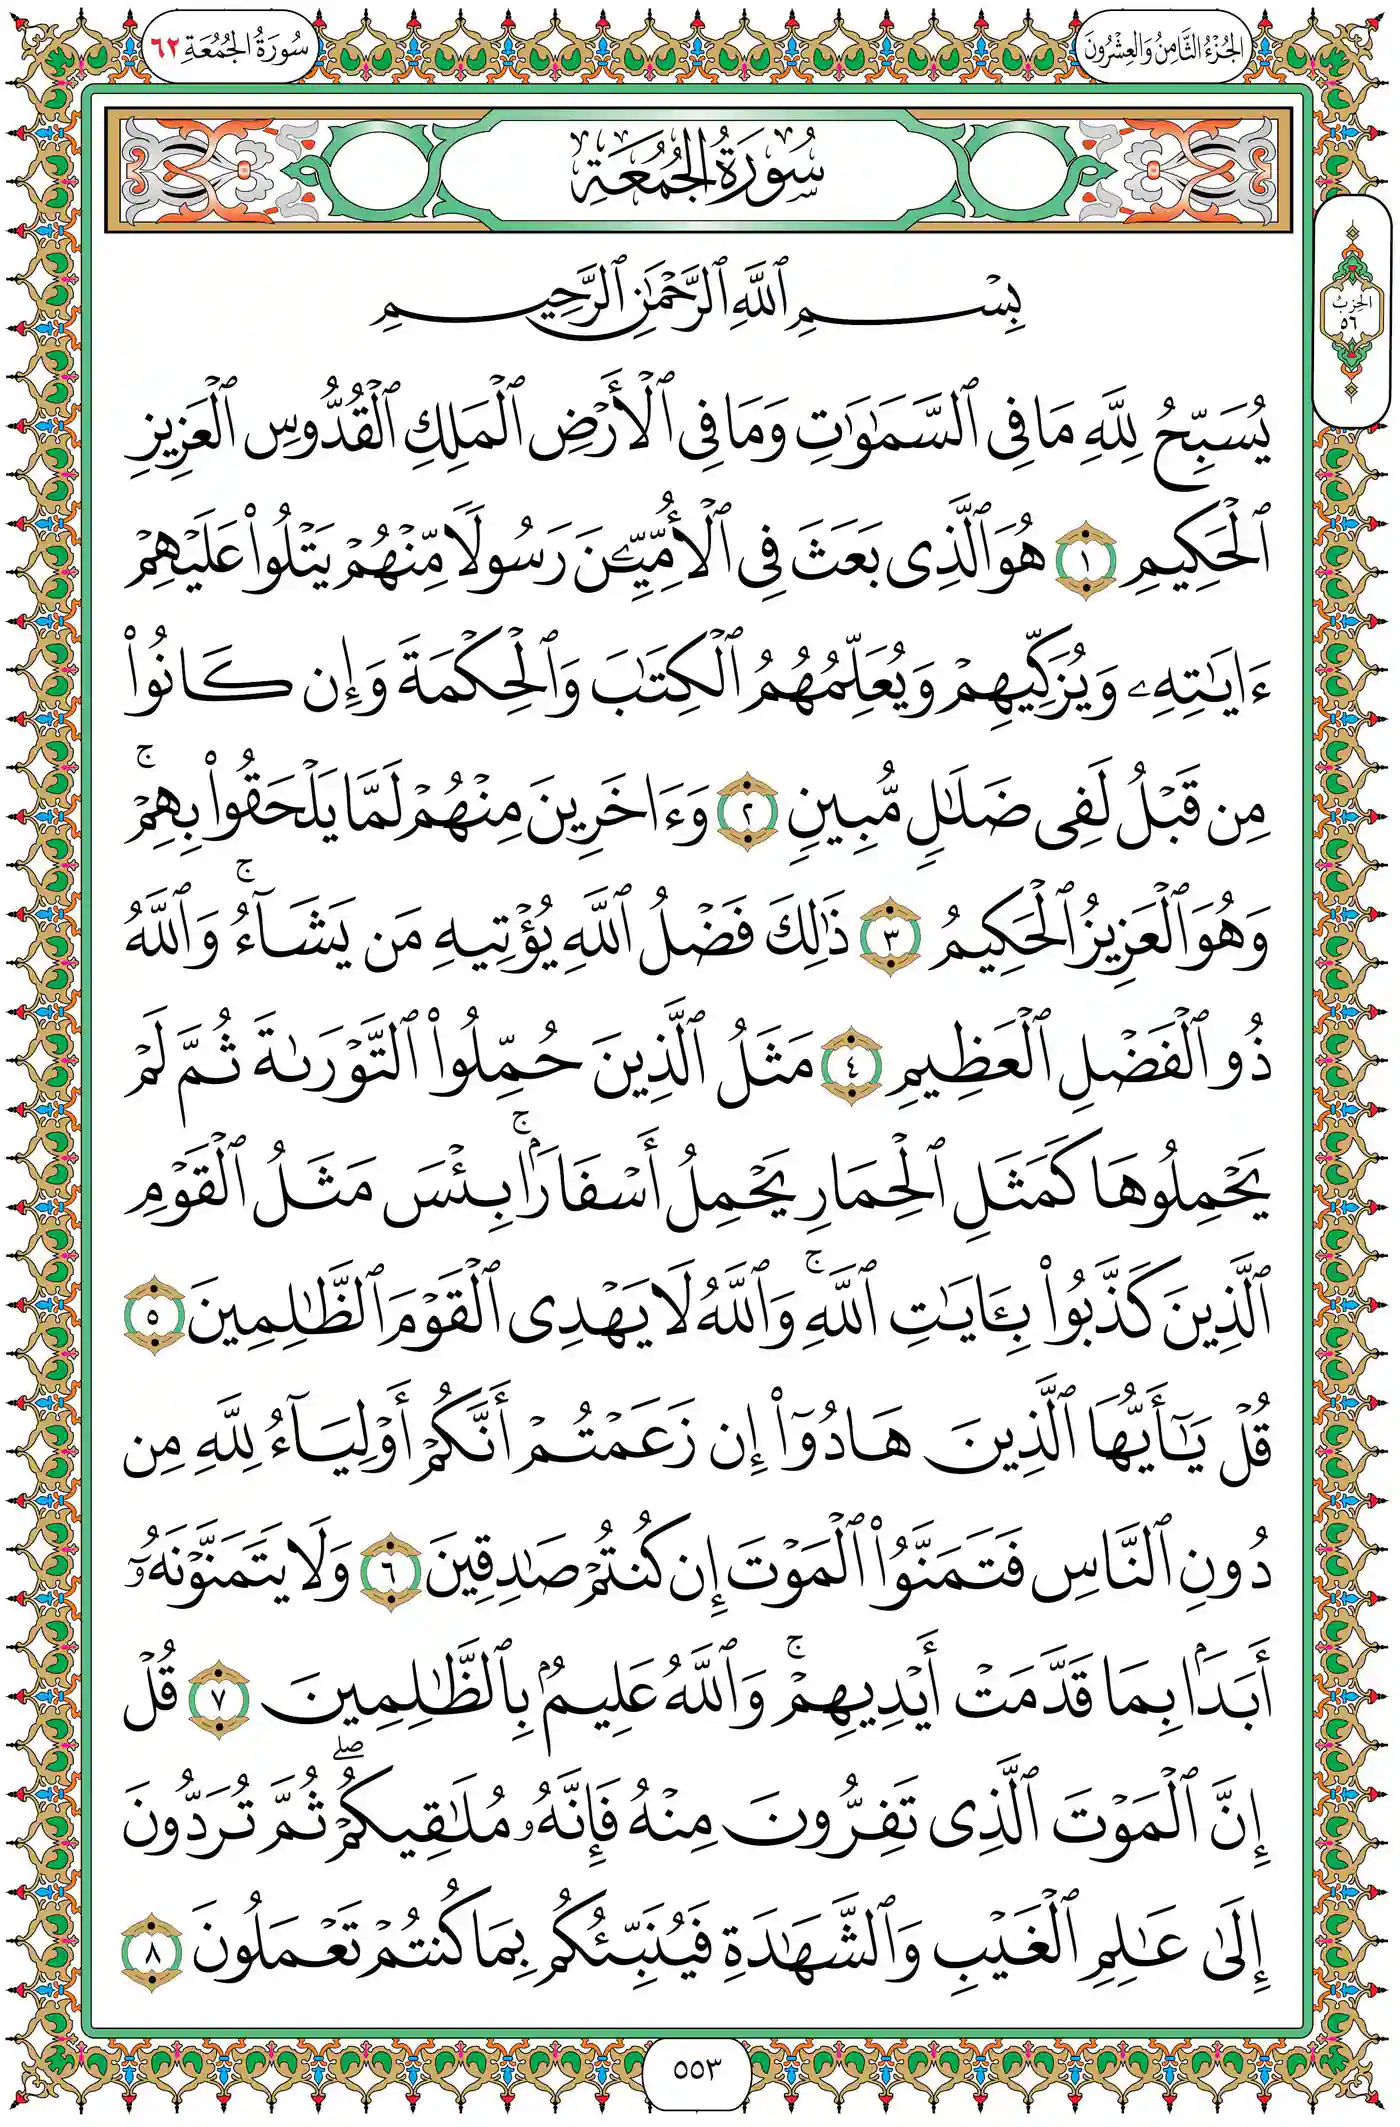 الجُزْءُ الثَّامِنُ وَالعِشْرُونَ
سُورَةُ الجُمُعَةِ ٦٢
سُورَةُ الجُمُعَةِ
الحِزْبُ
٥٦
بِسْمِ ٱللَّهِ ٱلرَّحْمَٰنِ ٱلرَّحِيمِ
يُسَبِّحُ لِلَّهِ مَا فِى ٱلسَّمَٰوَٰتِ وَمَا فِى ٱلْأَرْضِ ٱلْمَلِكِ ٱلْقُدُّوسِ ٱلْعَزِيزِ
ٱلْحَكِيمِ ١ هُوَ ٱلَّذِى بَعَثَ فِى ٱلْأُمِّيِّۦنَ رَسُولًا مِّنْهُمْ يَتْلُوا۟ عَلَيْهِمْ
ءَايَٰتِهِۦ وَيُزَكِّيهِمْ وَيُعَلِّمُهُمُ ٱلْكِتَٰبَ وَٱلْحِكْمَةَ وَإِن كَانُوا۟
مِن قَبْلُ لَفِى ضَلَٰلٍ مُّبِينٍ ٢ وَءَاخَرِينَ مِنْهُمْ لَمَّا يَلْحَقُوا۟ بِهِمْ ۚ
وَهُوَ ٱلْعَزِيزُ ٱلْحَكِيمُ ٣ ذَٰلِكَ فَضْلُ ٱللَّهِ يُؤْتِيهِ مَن يَشَآءُ ۚ وَٱللَّهُ
ذُو ٱلْفَضْلِ ٱلْعَظِيمِ ٤ مَثَلُ ٱلَّذِينَ حُمِّلُوا۟ ٱلتَّوْرَىٰةَ ثُمَّ لَمْ
يَحْمِلُوهَا كَمَثَلِ ٱلْحِمَارِ يَحْمِلُ أَسْفَارًۢا ۚ بِئْسَ مَثَلُ ٱلْقَوْمِ
ٱلَّذِينَ كَذَّبُوا۟ بِـَٔايَٰتِ ٱللَّهِ ۚ وَٱللَّهُ لَا يَهْدِى ٱلْقَوْمَ ٱلظَّٰلِمِينَ ٥
قُلْ يَٰٓأَيُّهَا ٱلَّذِينَ هَادُوٓا۟ إِن زَعَمْتُمْ أَنَّكُمْ أَوْلِيَآءُ لِلَّهِ مِن
دُونِ ٱلنَّاسِ فَتَمَنَّوُا۟ ٱلْمَوْتَ إِن كُنتُمْ صَٰدِقِينَ ٦ وَلَا يَتَمَنَّوْنَهُۥٓ
أَبَدًۢا بِمَا قَدَّمَتْ أَيْدِيهِمْ ۚ وَٱللَّهُ عَلِيمٌۢ بِٱلظَّٰلِمِينَ ٧ قُلْ
إِنَّ ٱلْمَوْتَ ٱلَّذِى تَفِرُّونَ مِنْهُ فَإِنَّهُۥ مُلَٰقِيكُمْ ۖ ثُمَّ تُرَدُّونَ
إِلَىٰ عَٰلِمِ ٱلْغَيْبِ وَٱلشَّهَٰدَةِ فَيُنَبِّئُكُم بِمَا كُنتُمْ تَعْمَلُونَ ٨
٥٥٣